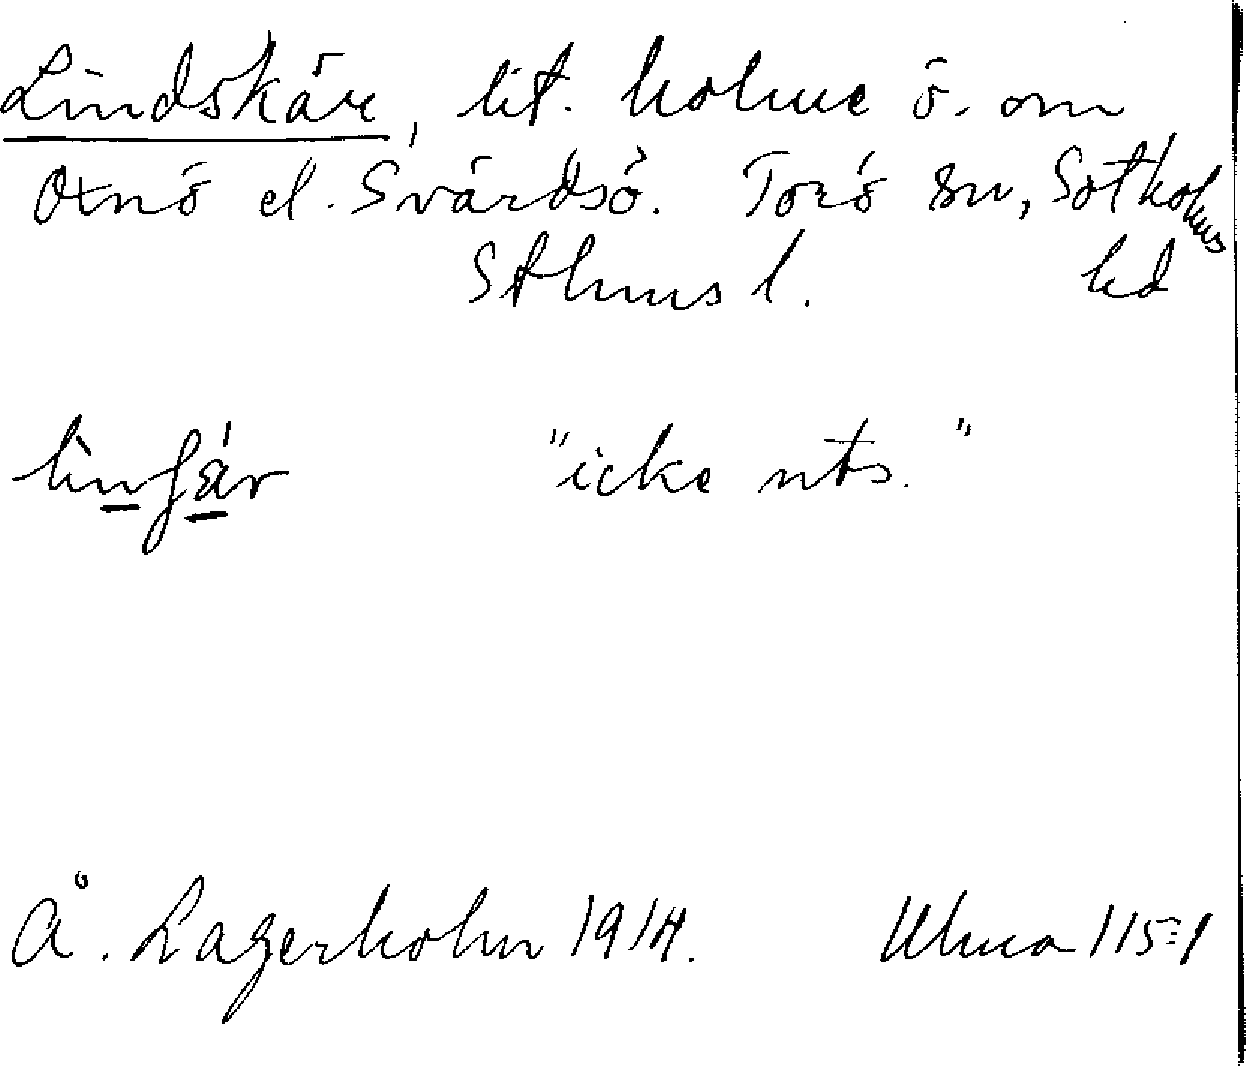 Lindskär, lit. holme ö. om
Oxnö el. Svärdsö. Torö sn, Sotholms
Sthms l. hd
"icke uts."
Å. Lagerholm 1914. Uhma 115:1